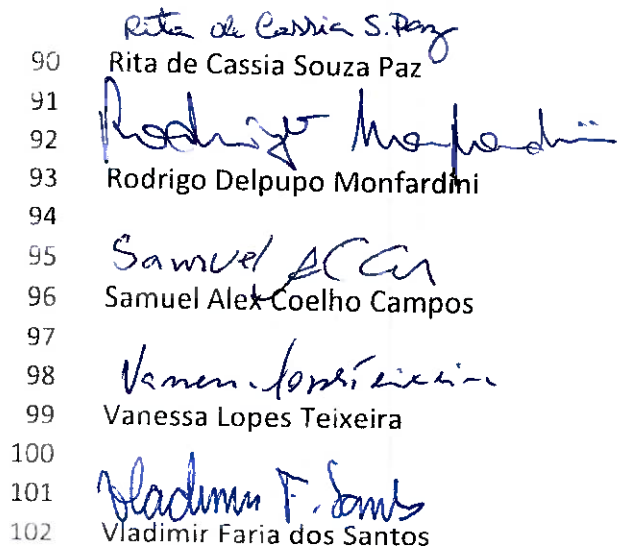 Rita de Cassia S. Paz
90 Rita de Cassia Souza Paz
91
92 Rodrigo Monfardini
93 Rodrigo Delpupo Monfardini
94
95 Samuel
96 Samuel Alex Coelho Campos
97
98 Vanessa Lopes Teixeira
99 Vanessa Lopes Teixeira
100
101 Vladimir F. Santos
102 Vladimir Faria dos Santos